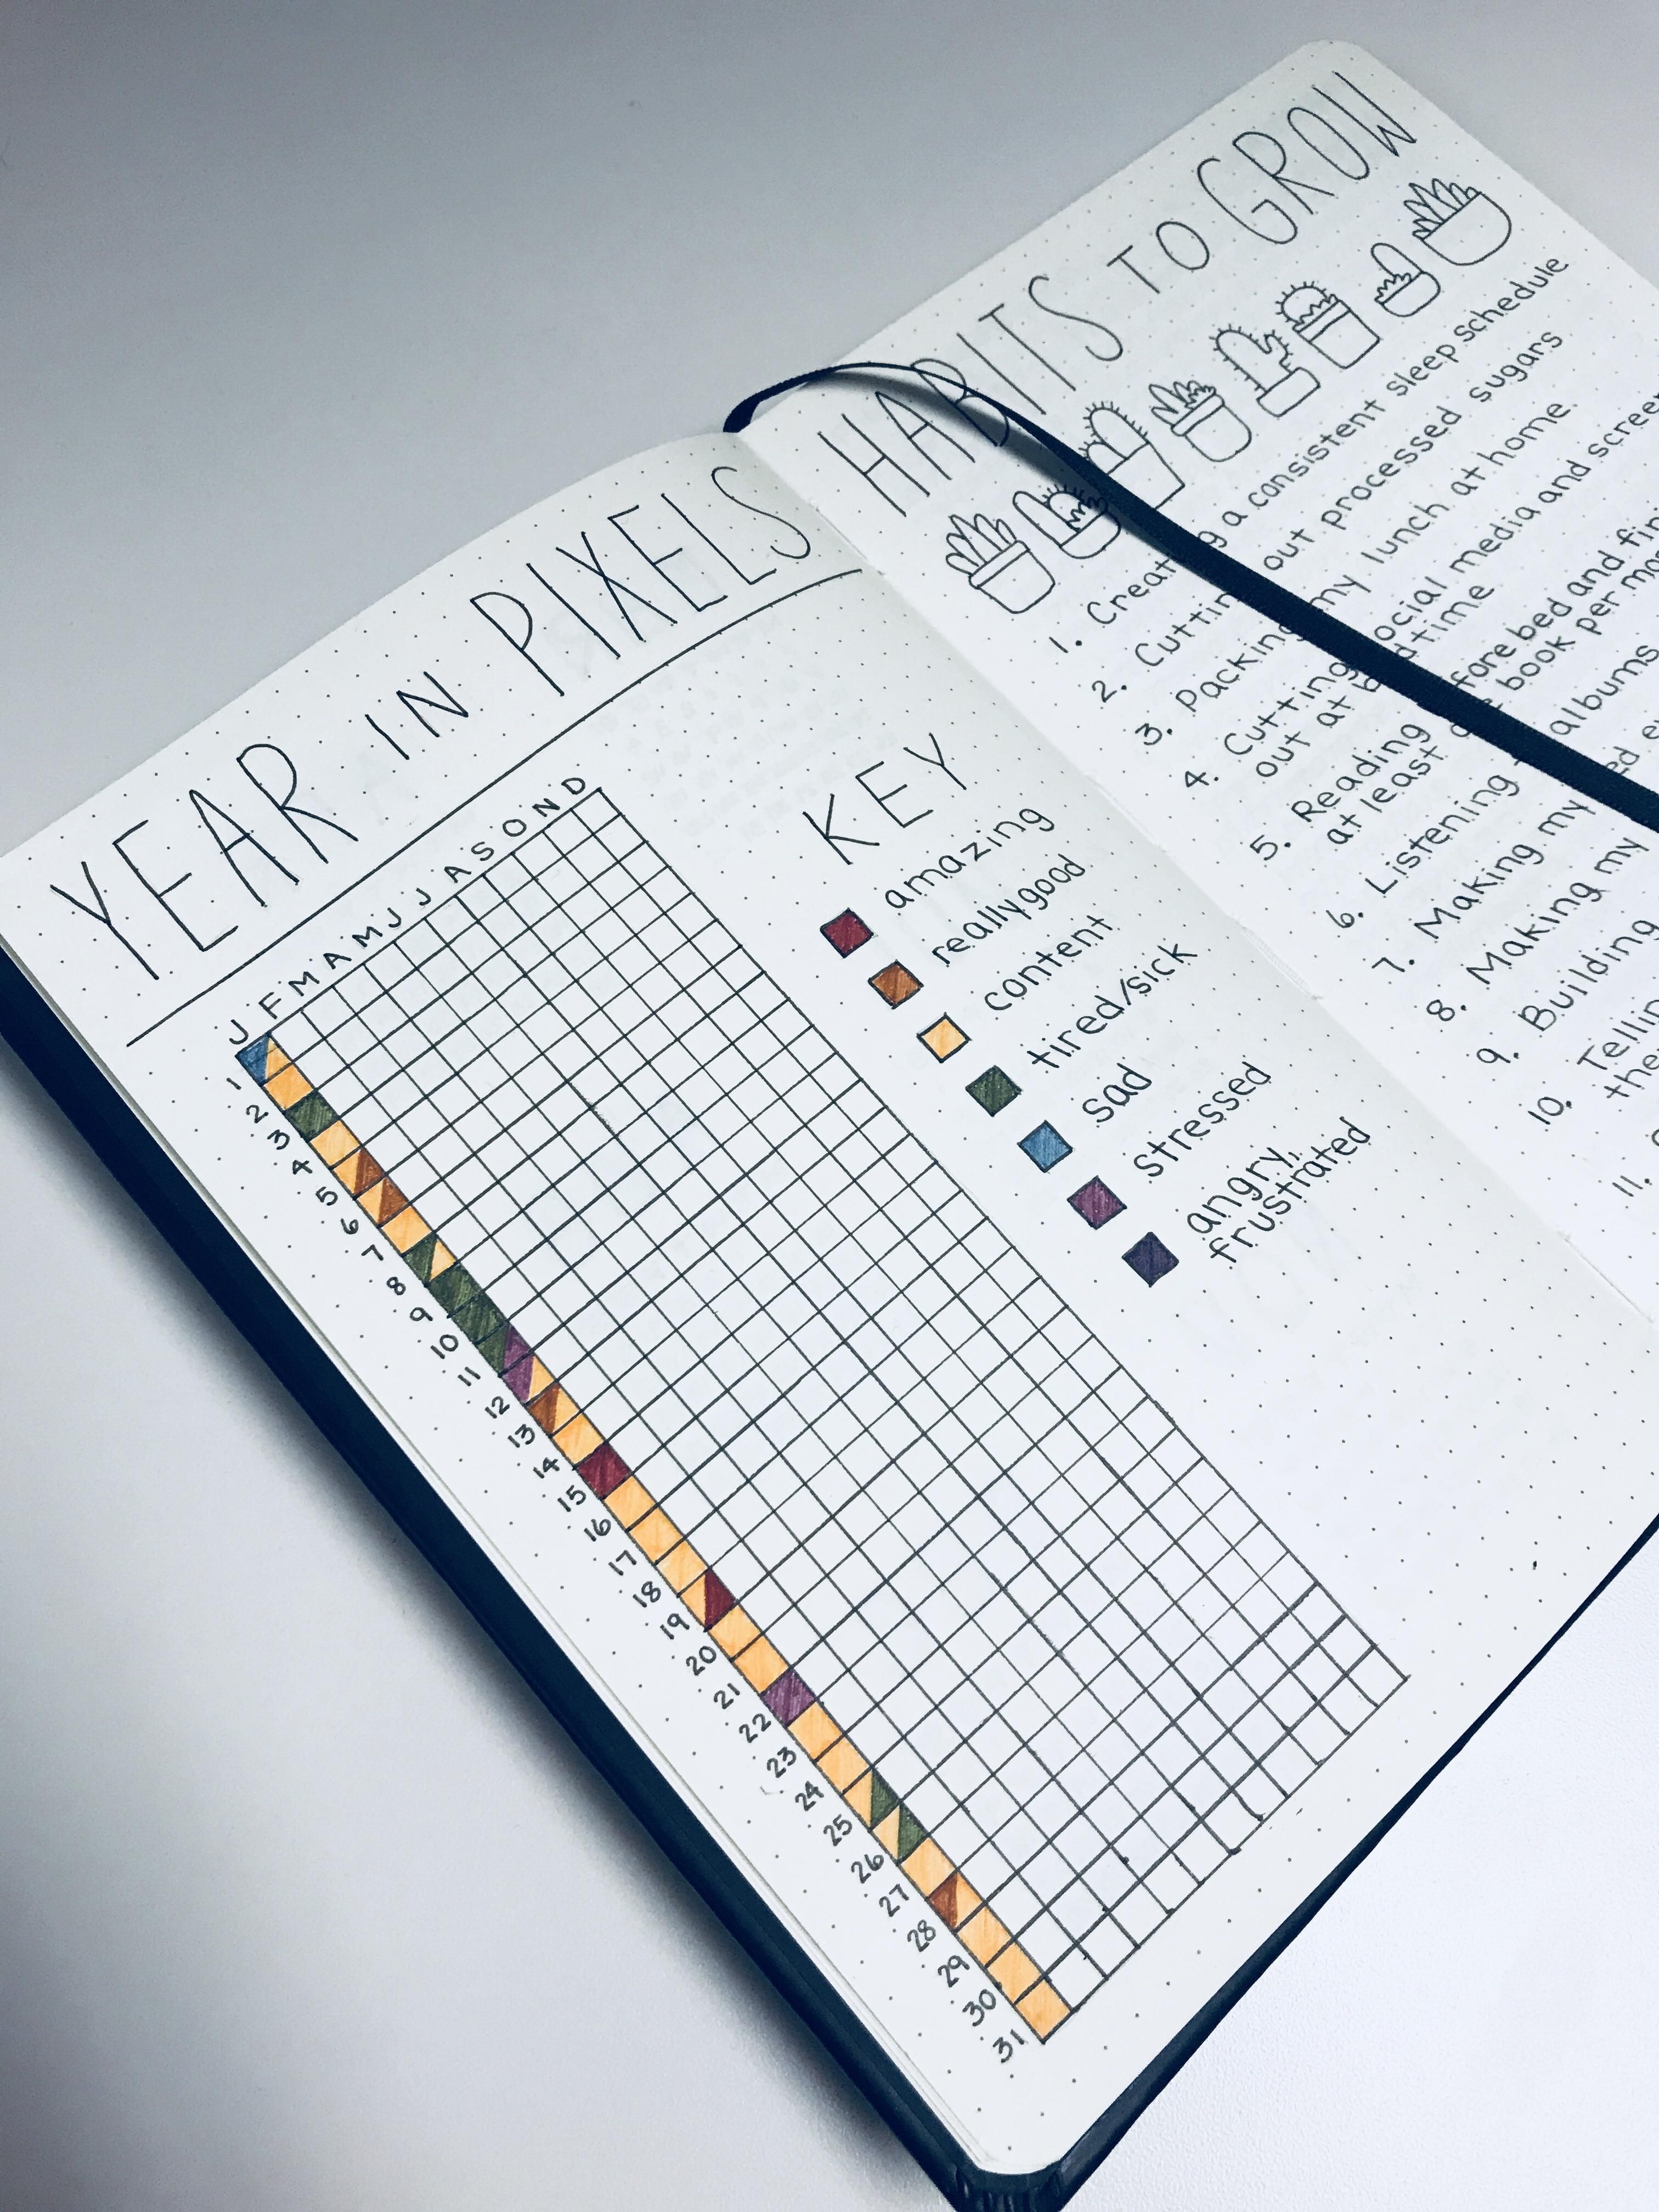 YEAR IN PIXELS
J F M A M J J A S O N D
1
2
3
4
5
6
7
8
9
10
11
12
13
14
15
16
17
18
19
20
21
22
23
24
25
26
27
28
29
30
31
KEY
amazing
really good
content
tired/sick
sad
stressed
angry,
frustrated
HABITS TO GROW
1. a consistent sleep schedule
2. out processed sugars
3. Packing my lunch at home.
4. Cutting social media and
out at
5. Reading bed and
at least book per
6. Listening albums
7. Making my
8. Making my
9. Building
10.
11.